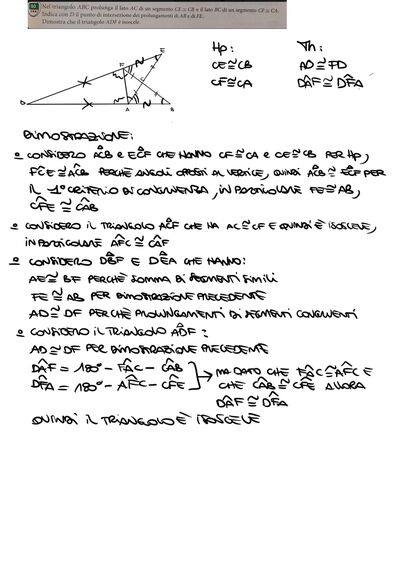 Nel triangolo ABC prolunga il lato AC di un segmento CE ≅ CB e il lato BC di un segmento CF ≅ CA.
Indica con D il punto di intersezione dei prolungamenti di AB e di FE.
Dimostra che il triangolo ADF è isoscele.
E
F
C
D
A
B
Hp:
CE≅CB
CF≅CA
Th:
AD≅FD
DÂF≅DF̂A
DIMOSTRAZIONE:
CONSIDERO AĈB E EĈF CHE HANNO CF≅CA E CE≅CB PER Hp,
FĈE≅AĈB PERCHÈ ANGOLI OPPOSTI AL VERTICE, QUINDI AĈB≅EĈF PER
IL 1° CRITERIO DI CONGRUENZA, IN PARTICOLARE FE≅AB,
CF̂E ≅ CÂB
CONSIDERO IL TRIANGOLO AĈF CHE HA AC≅CF E QUINDI È ISOSCELE,
IN PARTICOLARE AF̂C ≅ CÂF
CONSIDERO DB̂F E DÊA CHE HANNO:
AE≅BF PERCHÈ SOMMA DI SEGMENTI SIMILI
FE≅AB PER DIMOSTRAZIONE PRECEDENTE
AD≅DF PERCHÈ PROLUNGAMENTI DI SEGMENTI CONGRUENTI
CONSIDERO IL TRIANGOLO AD̂F:
AD≅DF PER DIMOSTRAZIONE PRECEDENTE
DÂF = 180° - FÂC - CÂB
DF̂A = 180° - AF̂C - CF̂E
MA DATO CHE FÂC≅AF̂C E
CHE CÂB≅CF̂E ALLORA
DÂF≅DF̂A
QUINDI IL TRIANGOLO È ISOSCELE